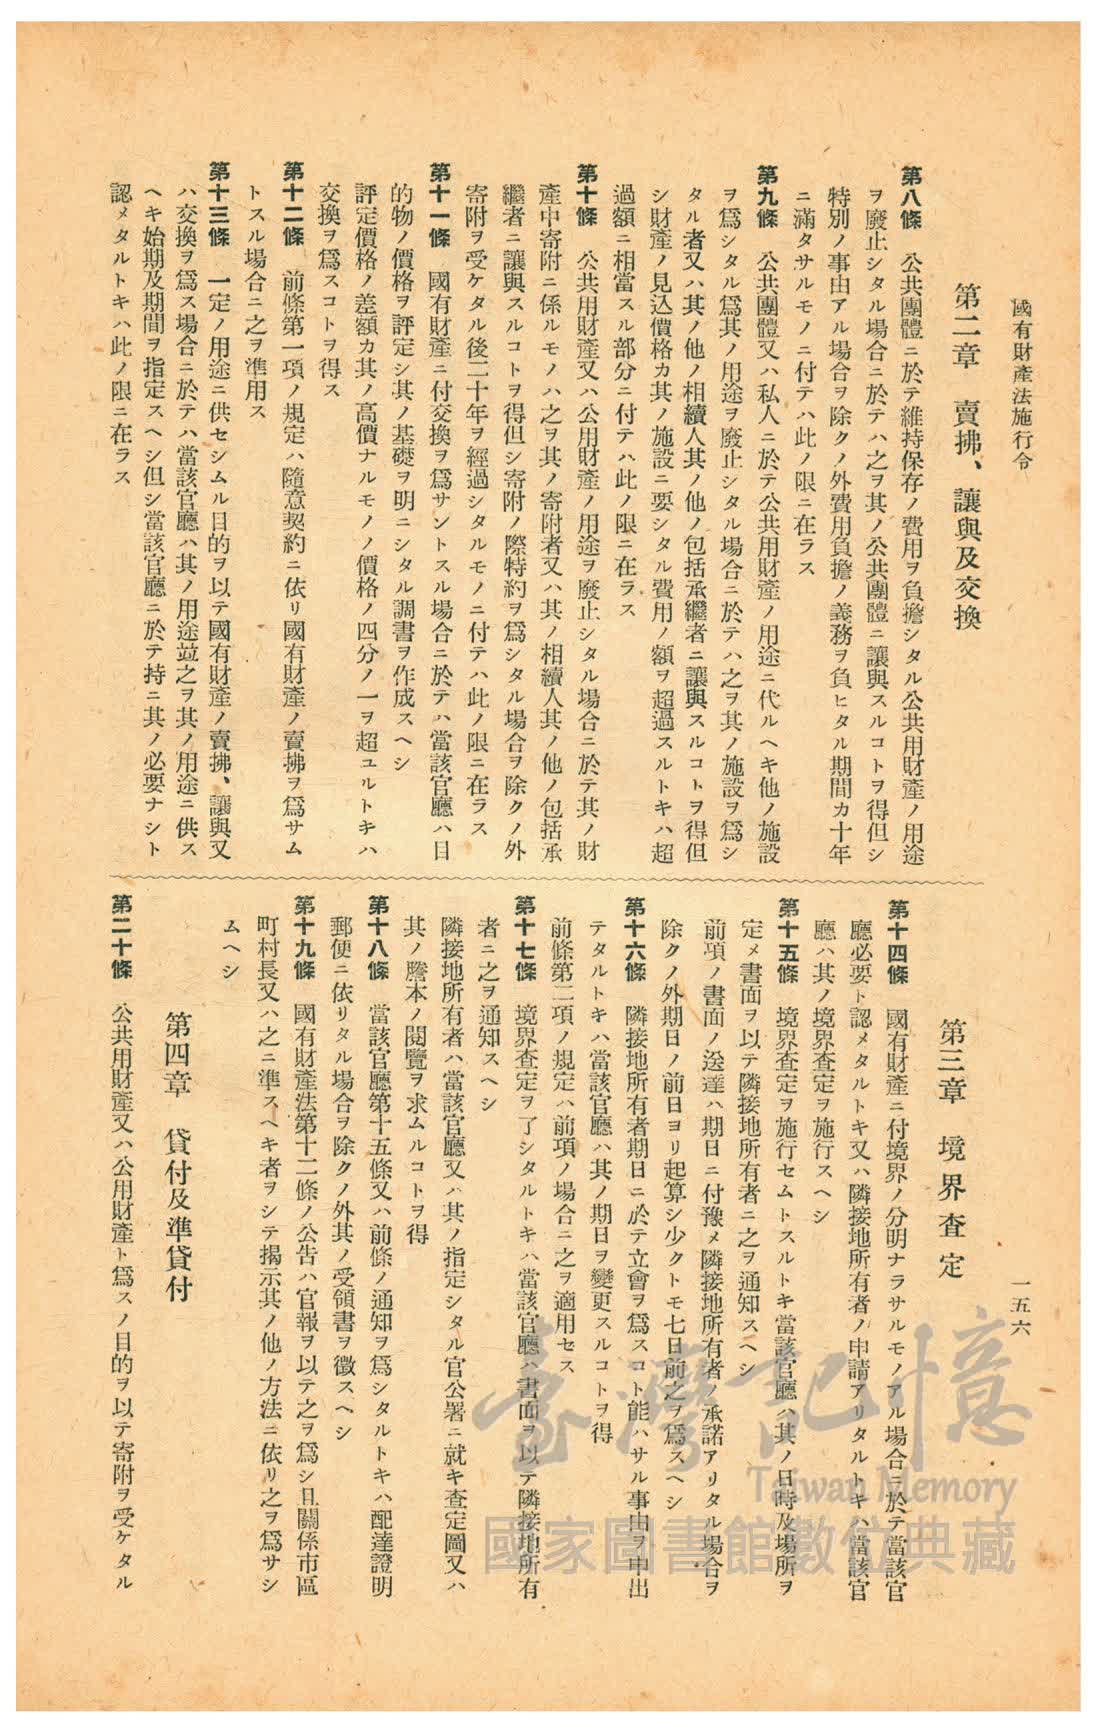 國有財產法施行令
一五六
第二章　賣拂、讓與及交換
第八條　公共團體ニ於テ維持保存ノ費用ヲ負擔シタル公共用財產ノ用途
ヲ廢止シタル場合ニ於テハ之ヲ其ノ公共團體ニ讓與スルコトヲ得但シ
特別ノ事由アル場合ヲ除クノ外費用負擔ノ義務ヲ負ヒタル期間カ十年
ニ滿タサルモノニ付テハ此ノ限ニ在ラス
第九條　公共團體又ハ私人ニ於テ公共用財產ノ用途ニ代ルヘキ他ノ施設
ヲ爲シタル爲其ノ用途ヲ廢止シタル場合ニ於テハ之ヲ其ノ施設ヲ爲シ
タル者又ハ其ノ他ノ相續人其ノ他ノ包括承繼者ニ讓與スルコトヲ得但
シ財產ノ見込價格カ其ノ施設ニ要シタル費用ノ額ヲ超過スルトキハ超
過額ニ相當スル部分ニ付テハ此ノ限ニ在ラス
第十條　公共用財產又ハ公用財產ノ用途ヲ廢止シタル場合ニ於テ其ノ財
產中寄附ニ係ルモノハ之ヲ其ノ寄附者又ハ其ノ相續人其ノ他ノ包括承
繼者ニ讓與スルコトヲ得但シ寄附ノ際特約ヲ爲シタル場合ヲ除クノ外
寄附ヲ受ケタル後二十年ヲ經過シタルモノニ付テハ此ノ限ニ在ラス
第十一條　國有財產ニ付交換ヲ爲サントスル場合ニ於テハ當該官廳ハ目
的物ノ價格ヲ評定シ其ノ基礎ヲ明ニシタル調書ヲ作成スヘシ
評定價格ノ差額カ其ノ高價ナルモノノ價格ノ四分ノ一ヲ超ユルトキハ
交換ヲ爲スコトヲ得ス
第十二條　前條第一項ノ規定ハ隨意契約ニ依リ國有財產ノ賣拂ヲ爲サム
トスル場合ニ之ヲ準用ス
第十三條　一定ノ用途ニ供セシムル目的ヲ以テ國有財產ノ賣拂、讓與又
ハ交換ヲ爲ス場合ニ於テハ當該官廳ハ其ノ用途竝之ヲ其ノ用途ニ供ス
ヘキ始期及期間ヲ指定スヘシ但シ當該官廳ニ於テ持ニ其ノ必要ナシト
認メタルトキハ此ノ限ニ在ラス
第三章　境界査定
第十四條　國有財產ニ付境界ノ分明ナラサルモノアル場合ニ於テ當該官
廳必要ト認メタルトキ又ハ隣接地所有者ノ申請アリタルトキハ當該官
廳ハ其ノ境界査定ヲ施行スヘシ
第十五條　境界査定ヲ施行セムトスルトキ當該官廳ハ其ノ日時及場所ヲ
定メ書面ヲ以テ隣接地所有者ニ之ヲ通知スヘシ
前項ノ書面ノ送達ハ期日ニ付豫メ隣接地所有者ノ承諾アリタル場合ヲ
除クノ外期日ノ前日ヨリ起算シ少クトモ七日前之ヲ爲スヘシ
第十六條　隣接地所有者期日ニ於テ立會ヲ爲スコト能ハサル事由ヲ申出
テタルトキハ當該官廳ハ其ノ期日ヲ變更スルコトヲ得
前條第二項ノ規定ハ前項ノ場合ニ之ヲ適用セス
第十七條　境界査定ヲ了シタルトキハ當該官廳ハ書面ヲ以テ隣接地所有
者ニ之ヲ通知スヘシ
隣接地所有者ハ當該官廳又ハ其ノ指定シタル官公署ニ就キ査定圖又ハ
其ノ謄本ノ閱覽ヲ求ムルコトヲ得
第十八條　當該官廳第十五條又ハ前條ノ通知ヲ爲シタルトキハ配達證明
郵便ニ依リタル場合ヲ除クノ外其ノ受領書ヲ徵スヘシ
第十九條　國有財產法第十二條ノ公告ハ官報ヲ以テ之ヲ爲シ且關係市區
町村長又ハ之ニ準スヘキ者ヲシテ揭示其ノ他ノ方法ニ依リ之ヲ爲サシ
ムヘシ
第四章　貸付及準貸付
第二十條　公共用財產又ハ公用財產ト爲スノ目的ヲ以テ寄附ヲ受ケタル
臺灣記憶
Taiwan Memory
國家圖書館數位典藏